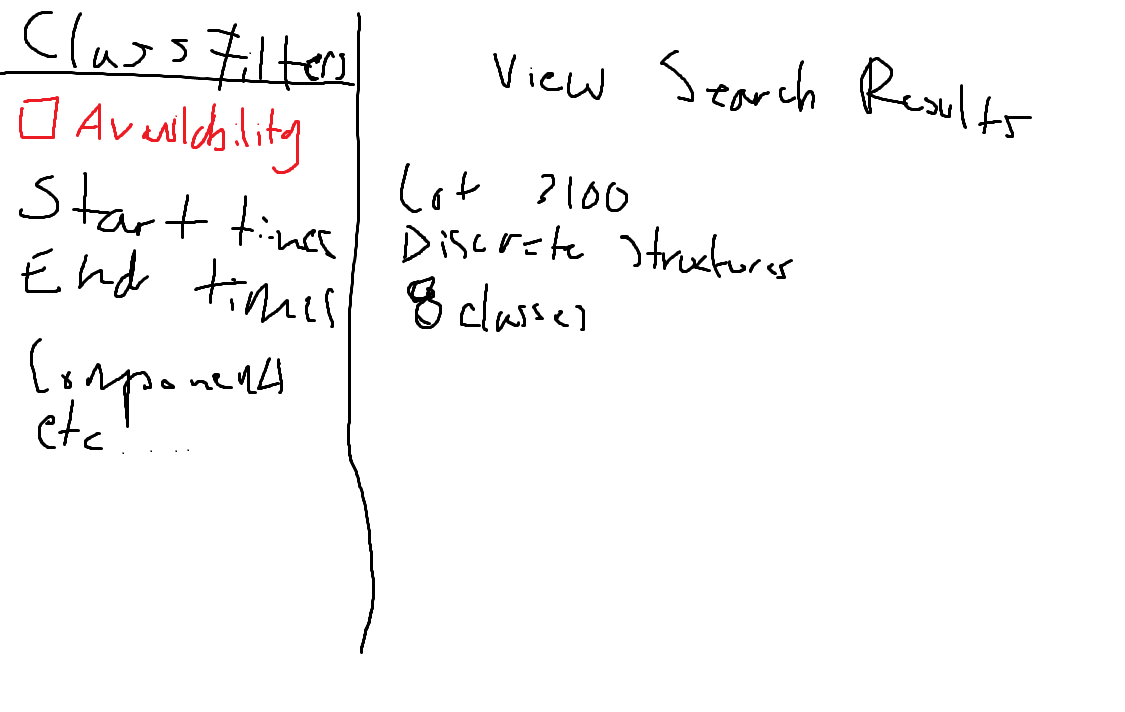 Class Filters
Availability
Start times
End times
Components
etc.....
View Search Results
Cot 3100
Discrete Structures
8 classes